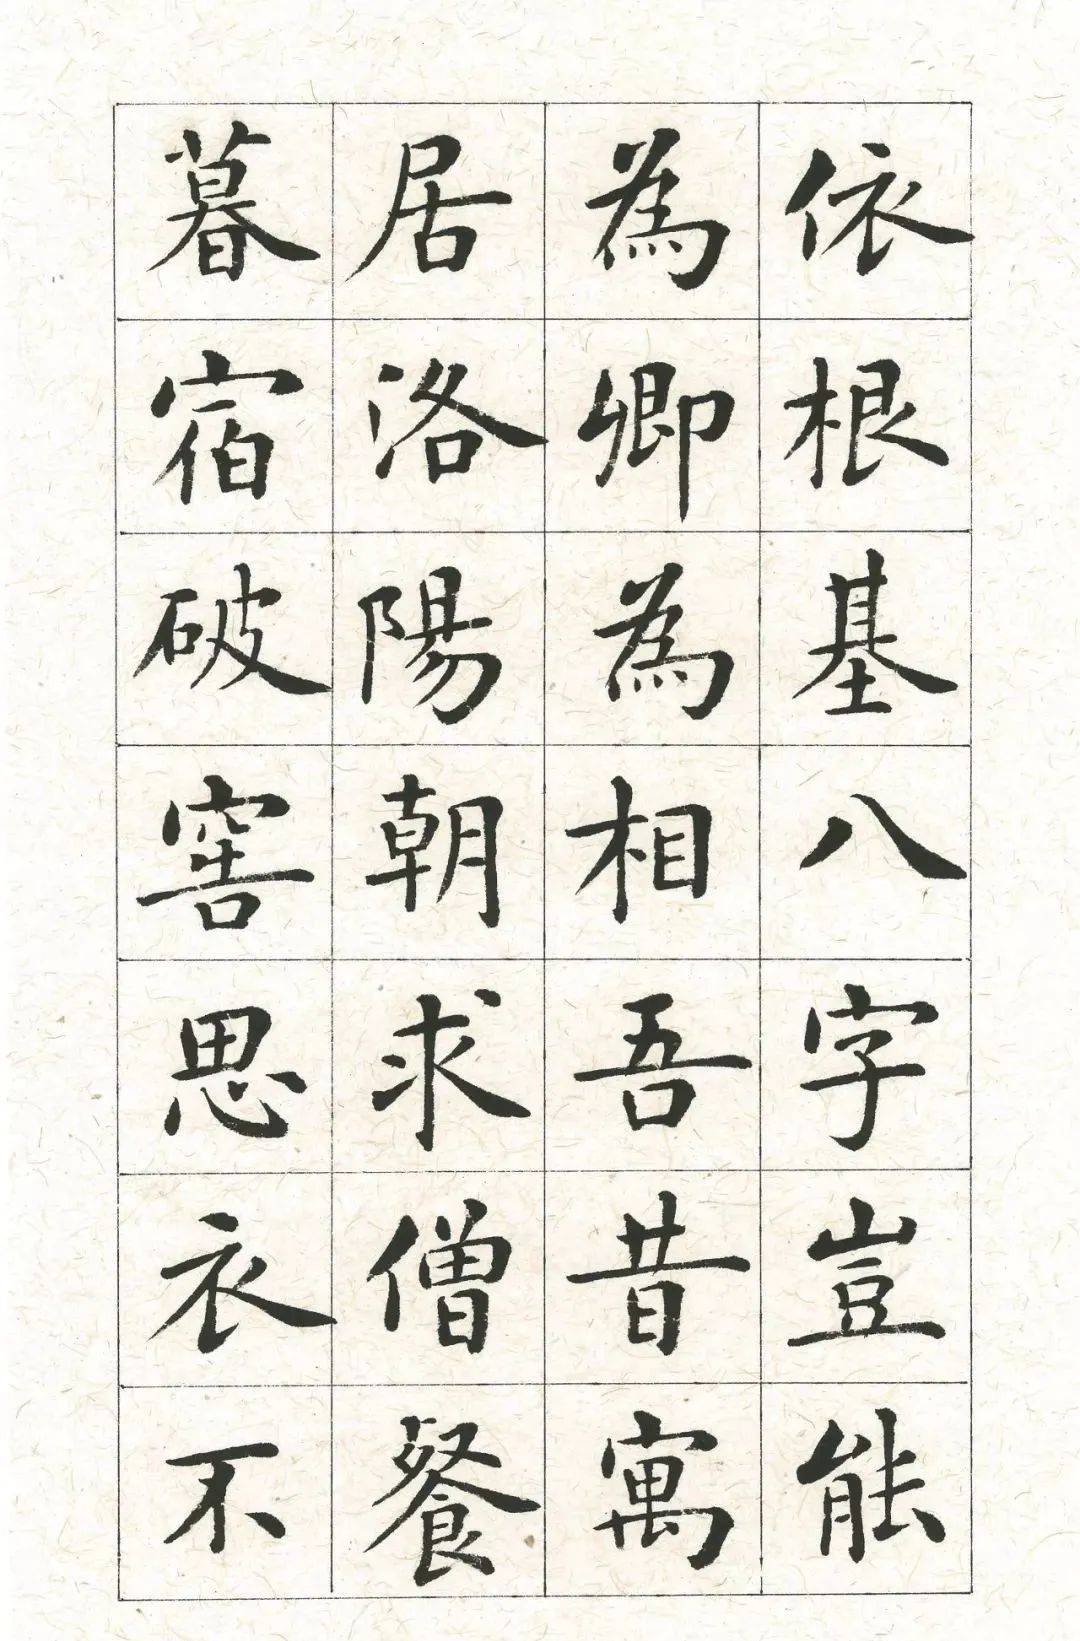 依根基八字豈能
為卿為相吾昔寓
居洛陽朝求僧餐
暮宿破窖思衣不